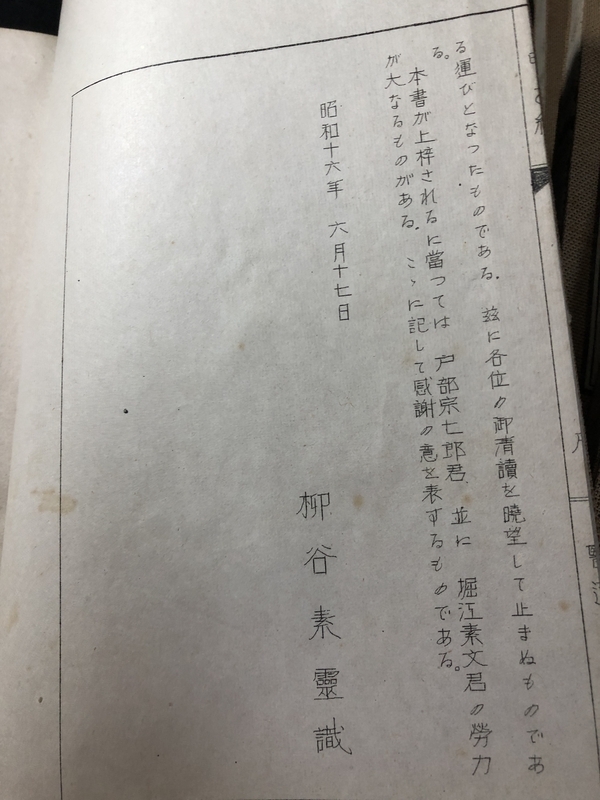 る運びとなつたものである。 玆に各位の御清讀を曉望して止まぬものであ
る。
本書が上梓されるに當つては 戸部宗七郎君 並に 堀江素文君の勞力
が大なるものがある。 こゝに記して感謝の意を表するものである。
昭和十六年 六月十七日
柳谷素靈識